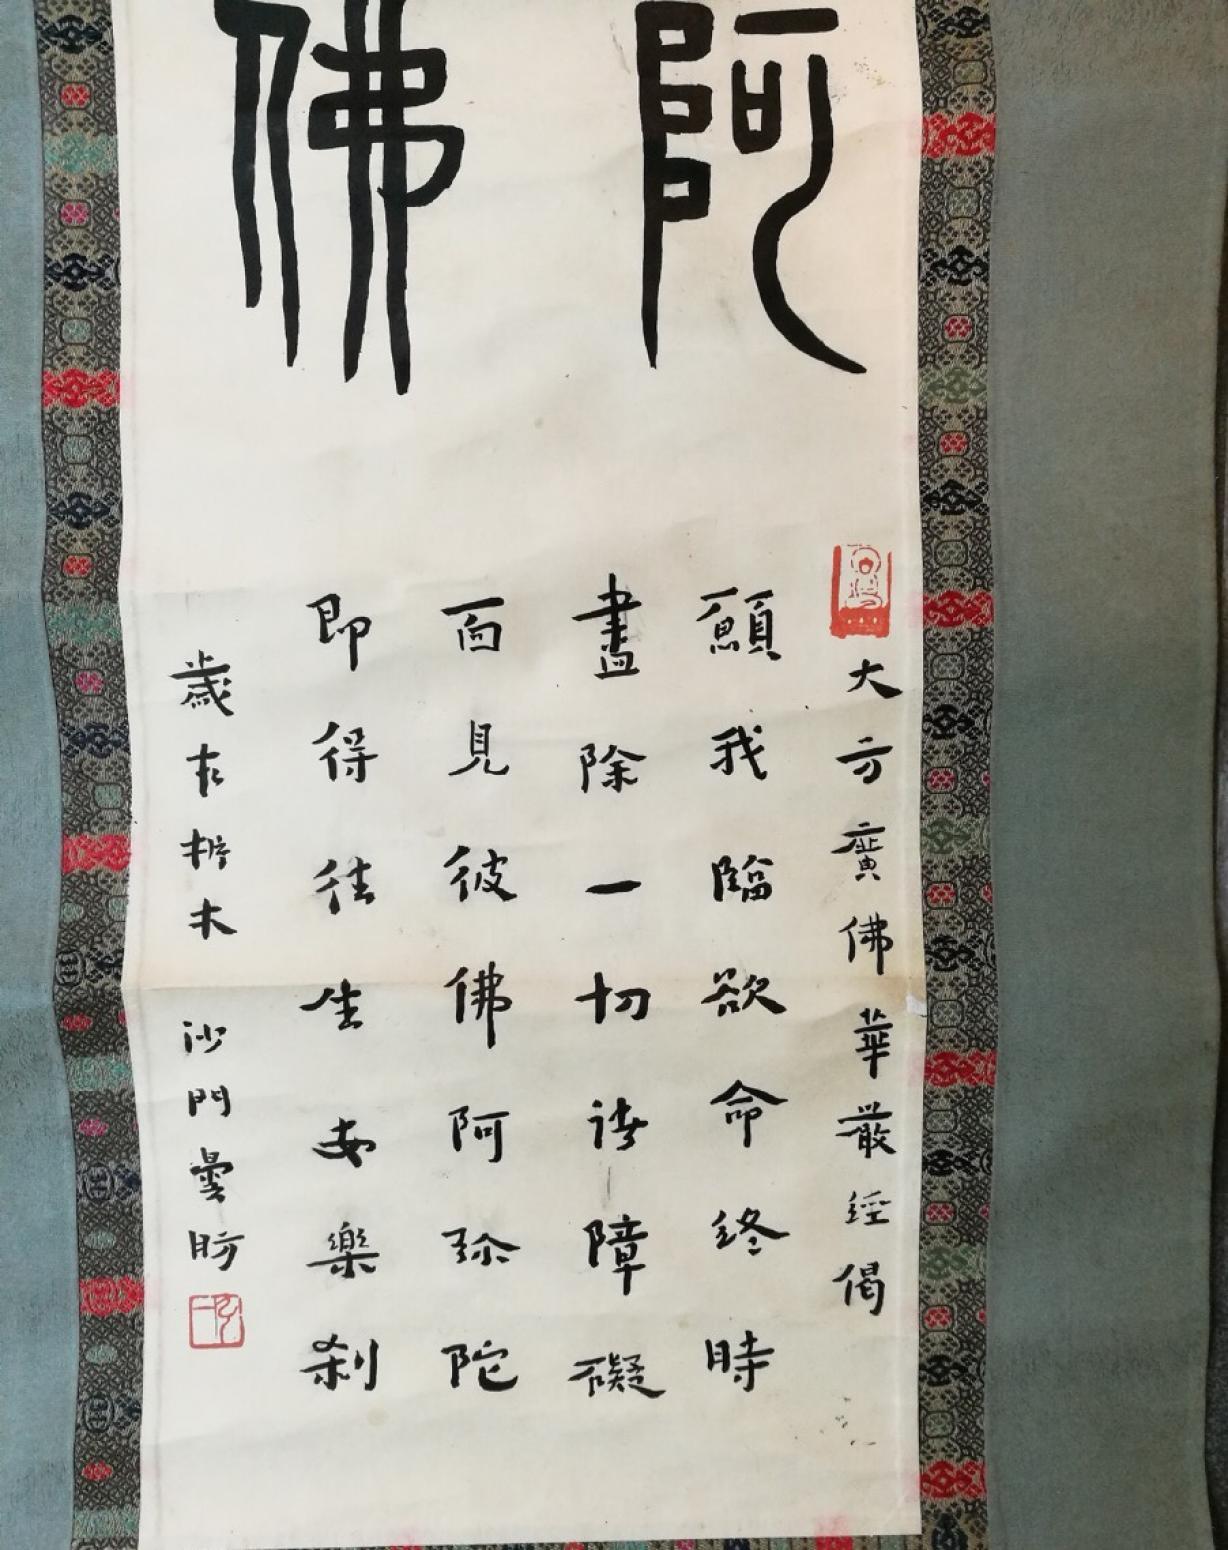 阿
佛
大方廣佛華嚴經偈
願我臨欲命終時
盡除一切諸障礙
面見彼佛阿弥陀
即得往生安樂刹
歲在析木沙門曇昉
弘一